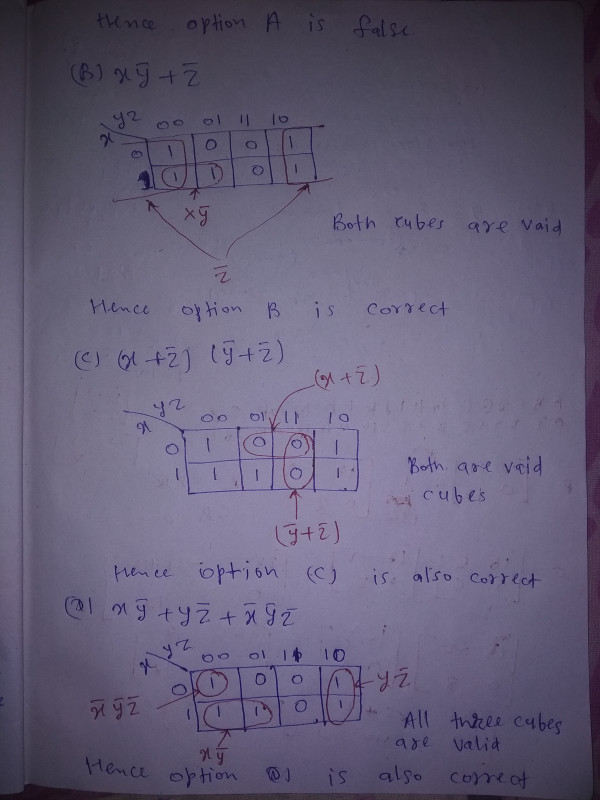 Hence option A is false
(B) xȳ + z̄
yz 00 01 11 10
x
0 1 0 0 1
1 1 1 0 1
xȳ
Both cubes are vaid
z̄
Hence option B is correct
(C) (x + z̄) (ȳ + z̄)
(x + z̄)
yz 00 01 11 10
x
0 1 0 0 1
1 1 1 0 1
Both are vaid
cubes
(ȳ + z̄)
Hence option (C) is also correct
(D) xȳ + yz̄ + x̄ȳz̄
yz 00 01 11 10
x
0 1 0 0 1 yz̄
x̄ȳz̄ 1 1 1 0 1
All three cubes
are valid
xȳ
Hence option (D) is also correct